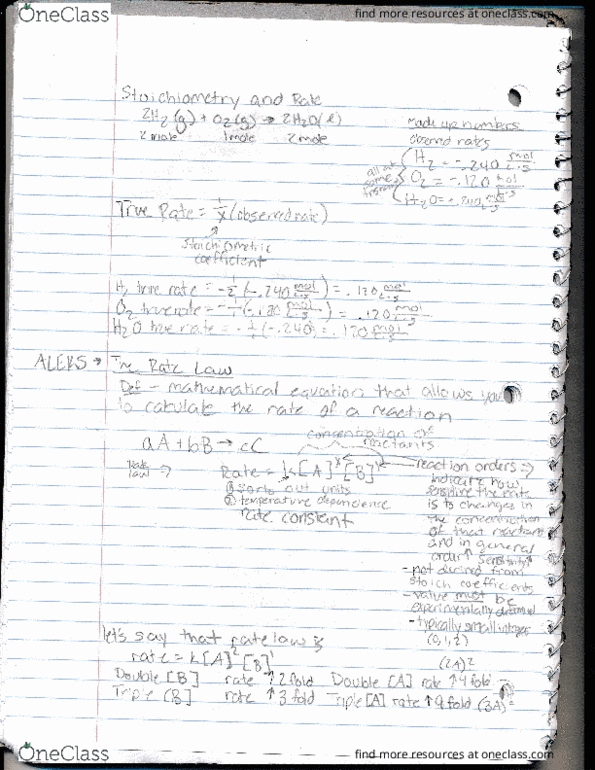 OneClass
find more resources at oneclass.com
Stoichiometry and Rate
2H₂(g) + O₂(g) → 2H₂O(l)
2 mole 1 mole 2 mole
Made up numbers
observed rates
H₂ = -.240 mol/L·s
O₂ = -.120 mol/L·s
H₂O = -.240 mol/L·s
all at same
True Rate = 1/x (observed rate)
Stoichiometric
coefficient
H₂ true rate = -1/2 (-.240 mol/L·s) = .120 mol/L·s
O₂ true rate = -1/1 (-.120 mol/L·s) = .120 mol/L·s
H₂O true rate = -1/2 (-.240) = .120 mol/L·s
ALEKS → The Rate Law
Def - mathematical equation that allows you
to calculate the rate of a reaction
concentration of
reactants
aA + bB → cC
Rate law ⇒ Rate = k[A]ˣ[B]ʸ
reaction orders ⇒
① sorts out units
② temperature dependence
rate constant
indicate how
sensitive the rate
is to changes in
the concentration
of that reactant
and in general
order↑ sensitivity↑
- not derived from
stoich coefficients
- value must be
experimentally determined
- typically small integer
(0, 1, 2)
let's say that rate law is
rate = k[A]²[B]¹
(2A)²
Double [B] rate ↑ 2 fold Double [A] rate ↑ 4 fold
Triple [B] rate ↑ 3 fold Triple [A] rate ↑ 9 fold (3A)²
OneClass
find more resources at oneclass.com